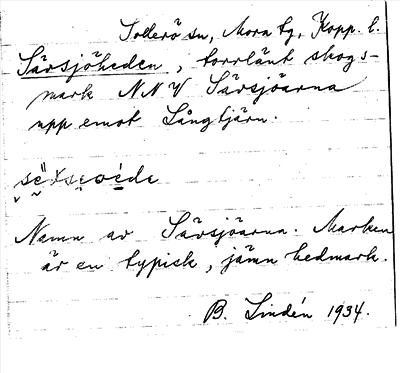 Sollerö sn, Mora tg, Kopp. l.
Särsjöheden, torrlänt skogs-
mark NNV Särsjöarna
upp emot Långtjärn.
Namn av Särsjöarna. Marken
är en typisk, jämn hedmark.
B. Lindén 1934.